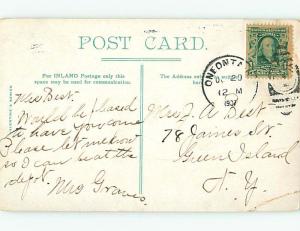 POST CARD.
For INLAND Postage only this
space may be used for communication.
The Address only
Mrs Best
Would be pleased
to have you come
Please let me know
so I can be at the
depot.
Mrs Graves.
ONEONTA
20
12 M
1907
Mrs J. A Best
78 James St.
Green Island
N. Y.